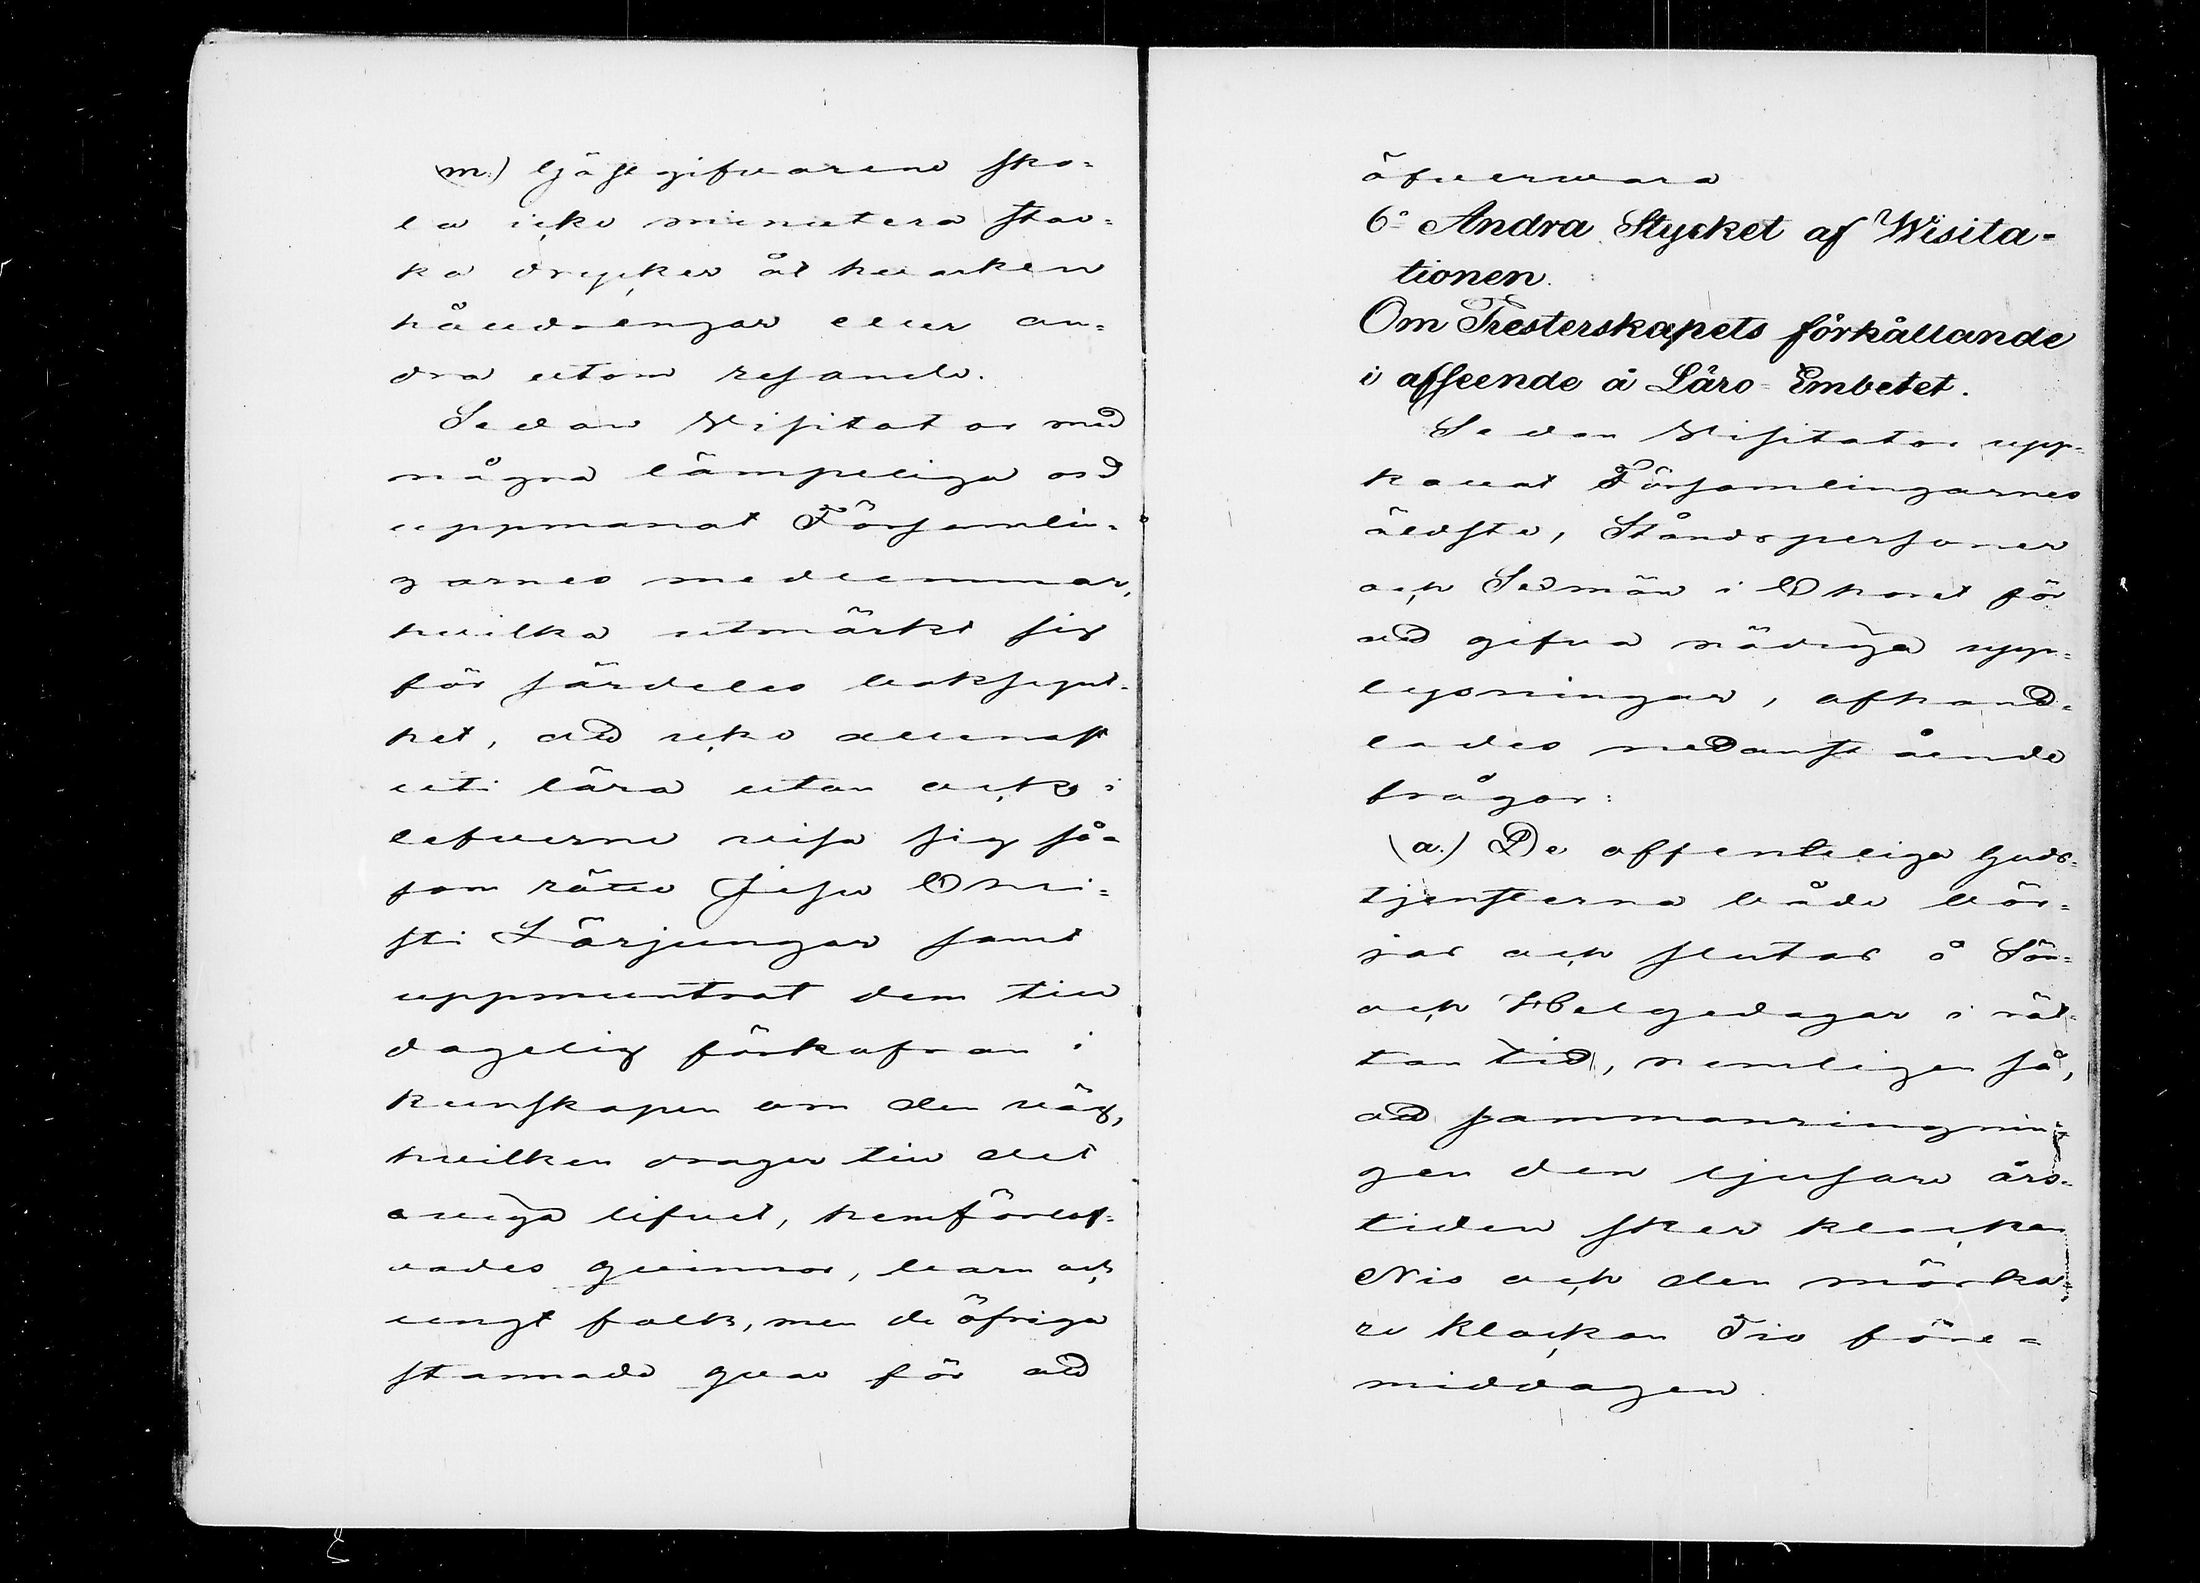 m.) Gjästgifvarene sko=
la icke minutera star=
ka drycker åt hvarken
hålldrengar eller an=
dra utom resande.
Sedan Visitator med
några lämpeliga ord
uppmanat Församlin=
garnes medlemmar,
hvilka utmärkt sig
för särdeles beskjed-
het, att icke allenast
uti lära utan ock i
lefverne visa sig så=
som rätte Jesu Chri=
sti Lärjungar samt
uppmuntrat dem till
dagelig förkofran i
kunskapen om den väg,
hvilken drager till det
eviga lifvet, hemförlof=
vades qvinnor, barn och
ungt folk, men de öfriga
stannade qvar för att
öfvervara
6:o Andra Stycket af Wisita=
tionen.
Om Presterskapets förhållande
i afseende å Läro-Embetet.
Sedan Visitator upp=
kallat Församlingarnes
äldste, Ståndspersoner
och Sexmän i Choret för
att gifva nödiga upp=
lysningar, afhand=
lades nedanstående
frågor:
(a.) De offenteliga Guds=
tjensterna både bör=
jas och slutas å Sön=
och Helgedagar i rät=
tan tid, nemligen så,
att sammanringnin=
gen den ljusare års=
tiden sker klockan
Nio och den mörka=
re klockan Tio före=
middagen.